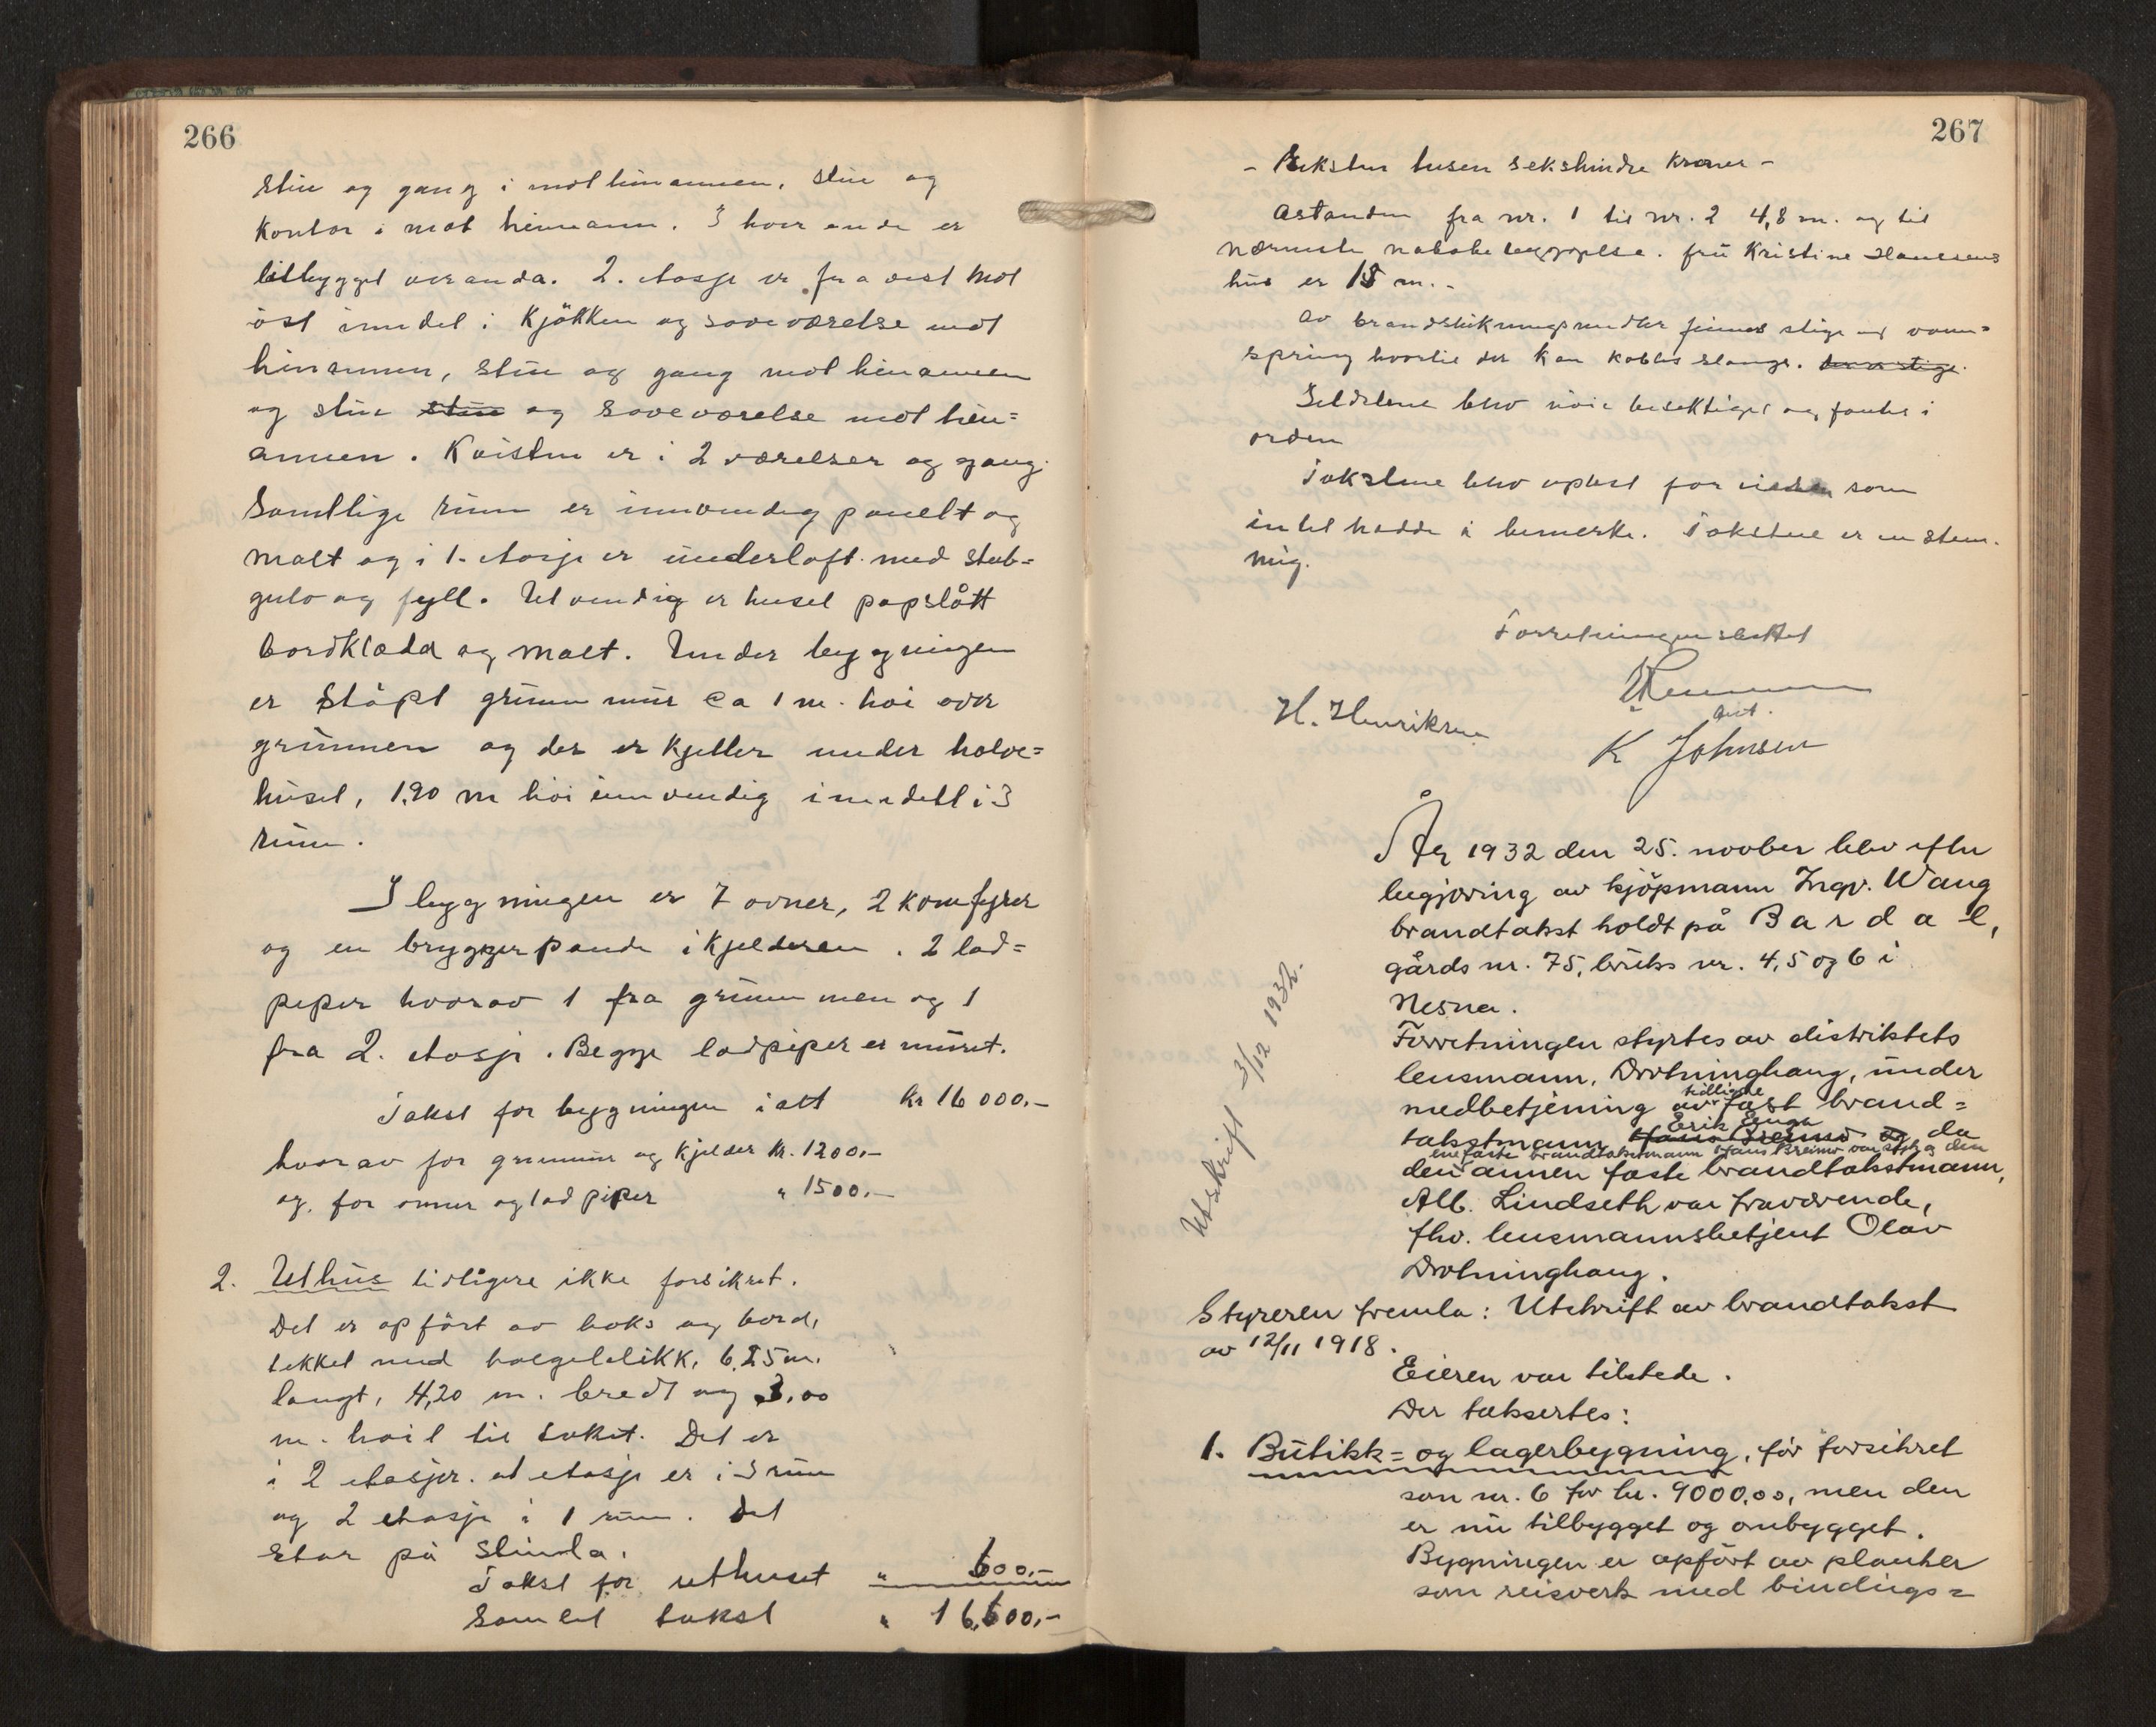 266
stue og gang i mot hinannen, stue og
kontor i mot hinann. I hver ende er
tilbygget veranda. 2. etasje er fra vest mot
øst inndel i kjøkken og soveværelse mot
hinannen, stue og gang mot hinannen
og stue stue og soveværelse mot hin=
annen. Kvisten er i 2 værelser og gang.
Samtlige rum er innvendig panelt og
malt og i 1. etasje er underloft med stub=
gulv og fyll. Utvendig er huset papslått
bordklædd og malt. Under bygningen
er støpt grunnmur ca 1 m. høi over
grunnen og der er kjeller under halve=
huset, 1,90 m høi innvendig inndelt i 3
rum.
I bygningen er 7 ovner, 2 komfyrer
og en bryggerpande i kjelderen. 2 lad=
piper hvorav 1 fra grunnmen og 1
fra 2. etasje. Begge ladpiper er muret.
Takst for bygningen i alt kr 16 000.-
hvorav for grunnmur og kjelder kr. 1200.-
og for ovner og ladpiper " 1500.-
2. Uthus tidligere ikke forsikret.
Det er opført av boks og bord,
tekket med bølgeblikk, 6,25 m.
langt, 4,20 m. bredt og 3,00
m. høit til taket. Det er
i 2 etasjer. 1st etasje er i 3 rum
og 2 etasje i 1 rum. Det
står på stunda.
Takst for uthuset " 600.-
Samlet takst " 16,600.-
267
- Seksten tusen sekshundre kroner -
Avstanden fra nr. 1 til nr. 2 4,8 m. og til
nærmeste nabobebyggelse. fru Kristine Hansens
hus er 15 m. -
Av brandslukningsmidler finnes stige og vann=
spring hvortil der kan kobles slange.
Ildstedene blev nøie besiktiget og fantes i
orden
Taksten blev oplest for eieren som
intet hadde å bemerke. Taksten er enstem-
mig.
Forretningen sluttet
H. Henriksen
K Johnsen
År 1932 den 25. novber blev efter
begjæring av kjøpmann Ingv. Wang
brandtakst holdt på Bardal,
gårds nr. 75, bruks nr. 4, 5 og 6 i
Nesna.
Forretningen styrtes av distriktets
lensmann, Drotninghaug, under
medbetjening av tidligere fast brand=
takstmann Hans Breimo og Erik Enga da
ene faste brandtakstmann Hans Breimo var syk og den
den annen faste brandtakstmann,
Alb. Lindseth var fraværende,
fhv. lensmannsbetjent Olav
Drotninghaug.
Styreren fremla: Utskrift av brandtakst
av 12/11 1918.
Eieren var tilstede.
Der taksertes:
1. Butikk= og lagerbygning, før forsikret
som nr. 6 for kr. 9000,00, men den
er nu tilbygget og ombygget.
Bygningen er opført av planker
som reisverk med bindings=
Utskrift 3/12 1932.